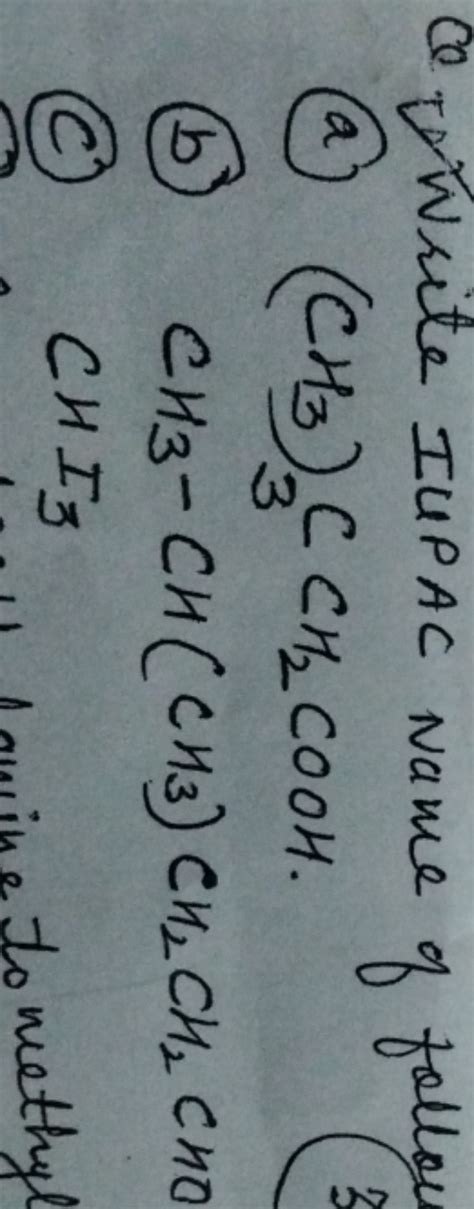 Write IUPAC Name of follow
3
(a) (CH3)3 C CH2 COOH.
(b) CH3-CH(CH3) CH2 CH2 CHO
(c) CHI3
to methyl